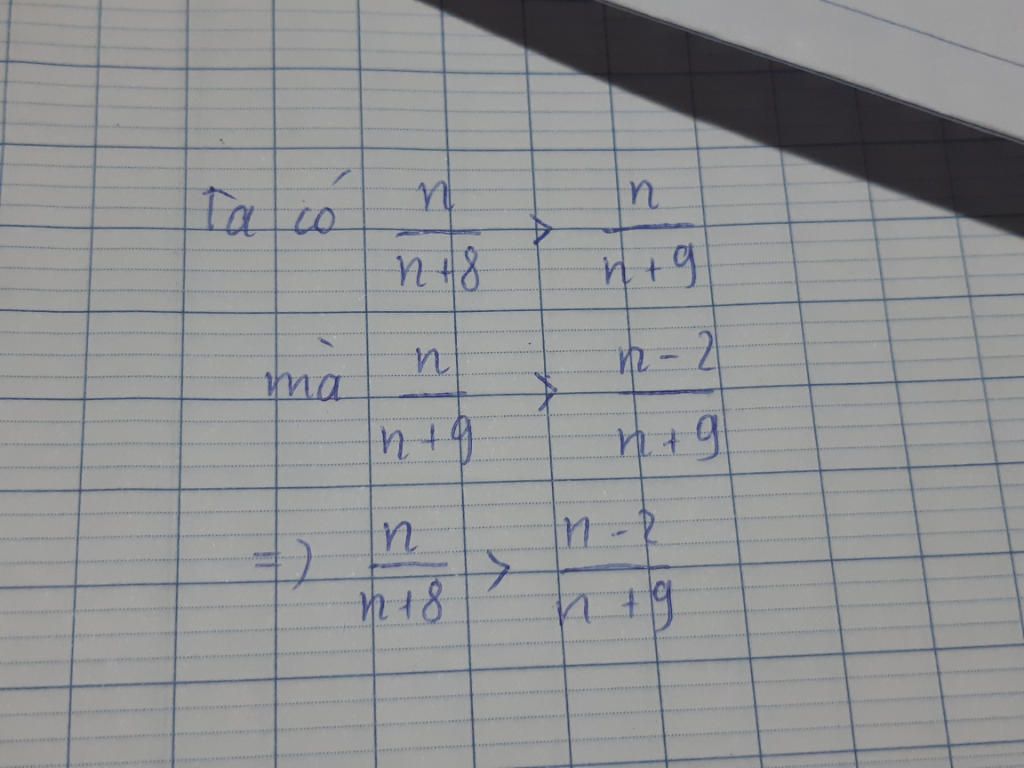 Ta có n/n+8 > n/n+9
mà n/n+9 > n-2/n+9
=) n/n+8 > n-2/n+9